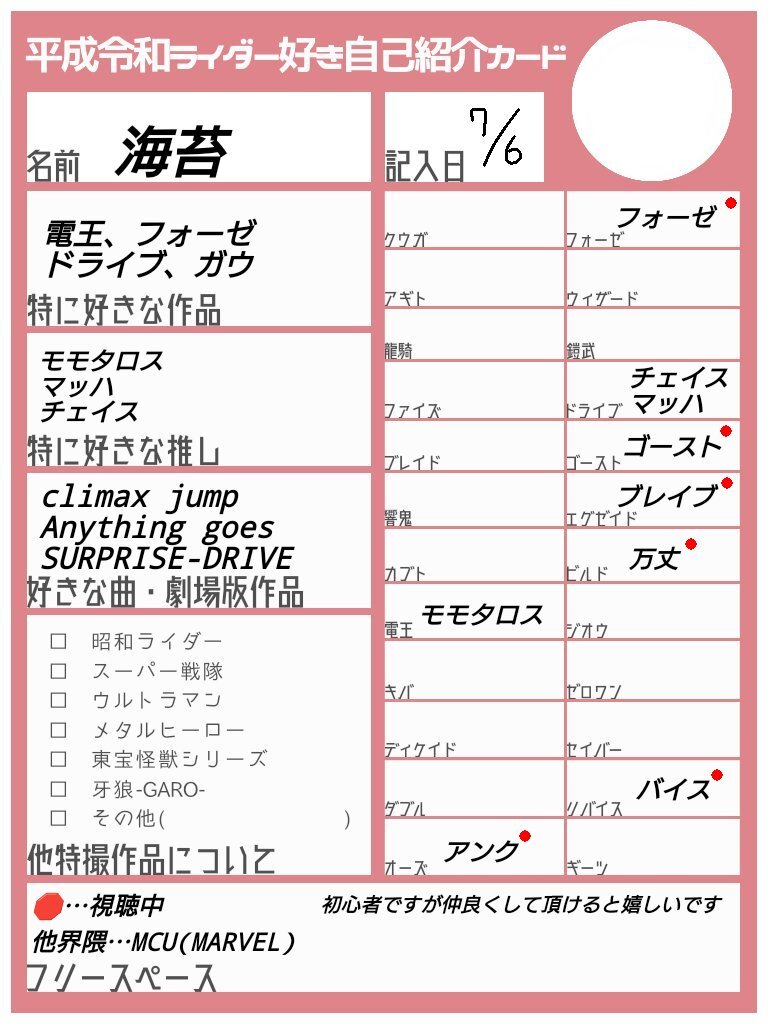 平成令和ライダー好き自己紹介カード
名前 海苔
記入日 7/6
電王、フォーゼ
ドライブ、ガウ
特に好きな作品
モモタロス
マッハ
チェイス
特に好きな推し
climax jump
Anything goes
SURPRISE-DRIVE
好きな曲・劇場版作品
□ 昭和ライダー
□ スーパー戦隊
□ ウルトラマン
□ メタルヒーロー
□東宝怪獣シリーズ
□ 牙狼-GARO-
□ その他( )
他特撮作品について
クウガ
アギト
龍騎
ファイズ
ブレイド
響鬼
カブト
電王 モモタロス
キバ
ディケイド
ダブル
オーズ アンク
フォーゼ フォーゼ
ウィザード
鎧武
チェイス
ドライブ マッハ
ゴースト ゴースト
エグゼイド ブレイブ
ビルド 万丈
ジオウ
ゼロワン
セイバー
リバイス バイス
ギーツ
🛑…視聴中
初心者ですが仲良くして頂けると嬉しいです
他界隈…MCU(MARVEL)
フリースペース